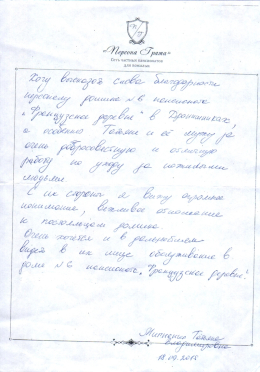 «Персона Гранта»
Сеть частных пансионатов
для пожилых
Хочу высказать слова благодарности
персоналу домика №6 пансионата
"Французская деревня" в
а особенно Татьяне и её мужу за
очень добросовестную и отличную
работу по уходу за пожилыми
людьми.
С их стороны я вижу огромное
понимание, вежливое отношение
к постояльцам домика.
Очень хочется и в дальнейшем
видеть в их лице обслуживание в
доме №6 пансионата "Французская деревня".
Татьяна
Владимировна
18.09.2015